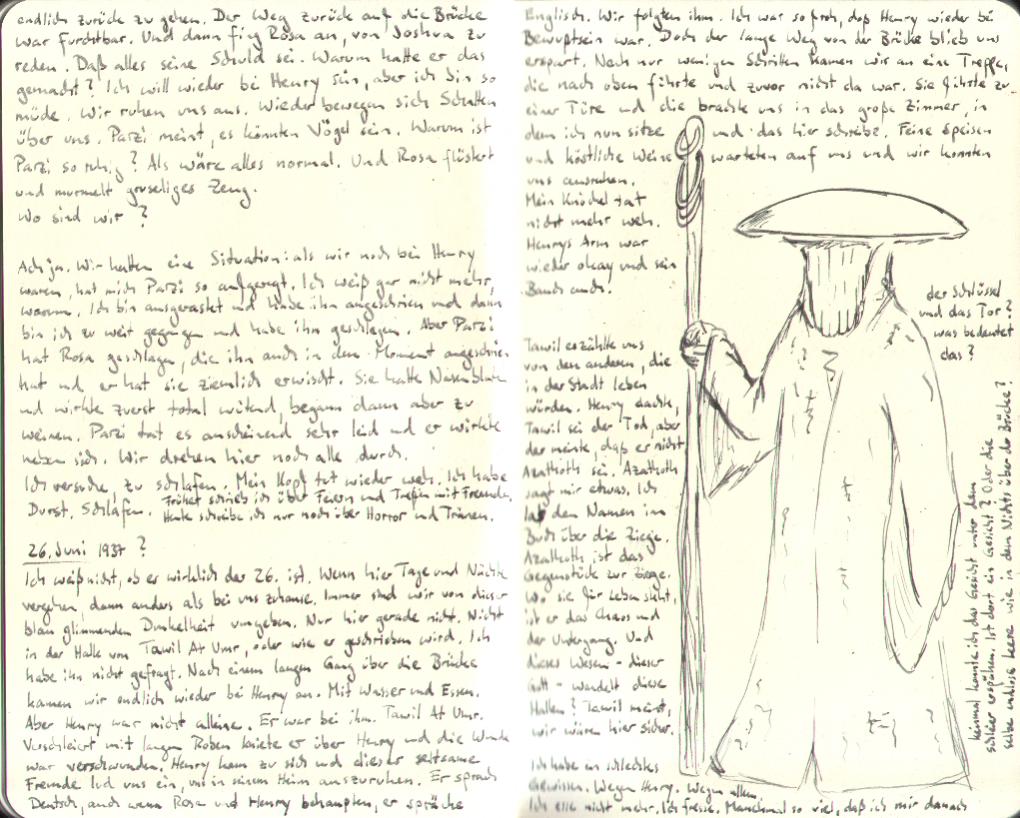 endlich zurück zu gehen. Der Weg zurück auf die Brücke
war furchtbar. Und dann fing Rosa an, von Joshua zu
reden. Daß alles seine Schuld sei. Warum hatte er das
gemacht? Ich will wieder bei Henry sein, aber ich bin so
müde. Wir ruhen uns aus. Wieder bewegen sich Schatten
über uns. Parzi meint, es könnten Vögel sein. Warum ist
Parzi so ruhig? Als wäre alles normal. Und Rosa flüstert
und murmelt gruseliges Zeug.
Wo sind wir?
Ach ja. Wir hatten eine Situation: als wir noch bei Henry
waren, hat mich Parzi so aufgeregt. Ich weiß gar nicht mehr,
warum. Ich bin ausgerastet und habe ihn angeschrien und dann
bin ich zu weit gegangen und habe ihn geschlagen. Aber Parzi
hat Rosa geschlagen, die ihn auch in dem Moment angeschrien
hat und er hat sie ziemlich erwischt. Sie hatte Nasenbluten
und wirkte zuerst total wütend, begann dann aber zu
weinen. Parzi tat es anscheinend sehr leid und er wirkte
neben sich. Wir drehen hier noch alle durch.
Ich versuche, zu schlafen. Mein Kopf tut wieder weh. Ich habe
Durst. Schlafen. Früher schrieb ich über Feiern und Treffen mit Freunden.
Heute schreibe ich nur noch über Horror und Tränen.
26. Juni 1937 ?
Ich weiß nicht, ob er wirklich der 26. ist. Wenn hier Tage und Nächte
vergehen, dann anders als bei uns zuhause. Immer sind wir von dieser
blau glimmenden Dunkelheit umgeben. Nur hier gerade nicht. Nicht
in der Halle von Tawil At Umr, oder wie er geschrieben wird. Ich
habe ihn nicht gefragt. Nach einem langen Gang über die Brücke
kamen wir endlich wieder bei Henry an. Mit Wasser und Essen.
Aber Henry war nicht alleine. Er war bei ihm. Tawil At Umr.
Verschleiert mit langen Roben kniete er über Henry und die Wunde
war verschwunden. Henry kam zu sich und dieser seltsame
Fremde lud uns ein, uns in seinem Heim auszuruhen. Er sprach
Deutsch, auch wenn Rosa und Henry behaupten, er spräche
Englisch. Wir folgten ihm. Ich war so froh, daß Henry wieder bei
Bewußtsein war. Doch der lange Weg von der Brücke blieb uns
erspart. Nach nur wenigen Schritten kamen wir an eine Treppe,
die nach oben führte und zuvor nicht da war. Sie führte zu
einer Türe und die brachte uns in das große Zimmer, in
dem ich nun sitze und das hier schreibe. Feine Speisen
und köstliche Weine warteten auf uns und wir konnten
uns ausruhen.
Mein Knöchel tat
nicht mehr weh.
Henrys Arm war
wieder okay und sein
Bauch auch.
Tawil erzählte uns
von den anderen, die
in der Stadt leben
würden. Henry dachte,
Tawil sei der Tod, aber
der meinte, daß er nicht
Azathoth sei. Azathoth
sagt mir etwas. Ich
las den Namen im
Buch über die Ziege.
Azathoth ist das
Gegenstück zur Ziege.
Wo sie für Leben steht,
ist er das Chaos und
der Untergang. Und
dieses Wesen - dieser
Gott - wandelt diese
Hallen? Tawil meint,
wir wären hier sicher.
Ich habe ein schlechtes
Gewissen. Wegen Henry. Wegen allem.
Ich esse nicht mehr. Ich fresse. Manchmal so viel, daß ich mir danach
der Schlüssel
und das Tor?
was bedeutet
das?
keinmal konnte ich das Gesicht unter dem
Schleier erspähen. Ist dort ein Gesicht? Oder die
selbe endlose Leere wie in dem Nichts über der Brücke?